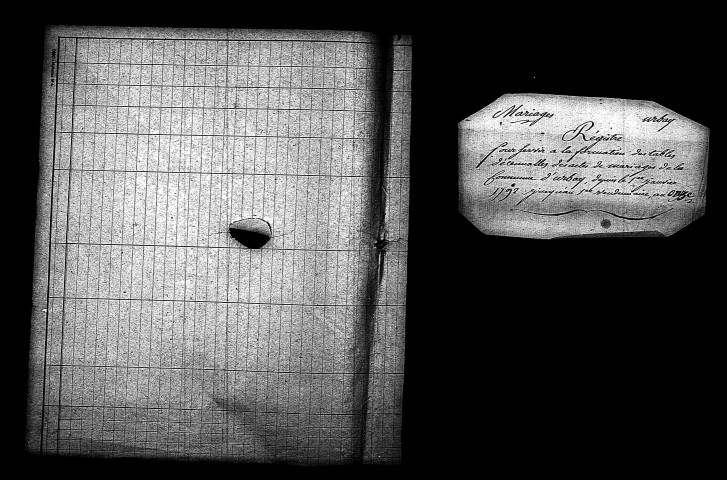 Mariages urbay
Régistre
pour servir a la formation des tables
décennalles des actes de mariages de la
Commune d'urbay, depuis le 1er janvier
1792 jusqu'au 1er vendemiaire an